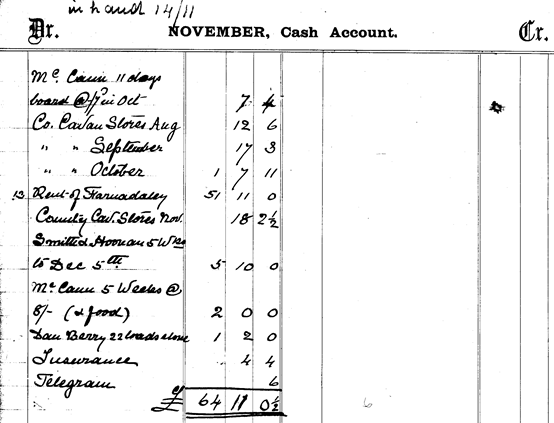 in hand 14/11
Dr. NOVEMBER, Cash Account. Cr.
Mc. Cann 11 days
board @ /7 in Oct 7 4
Co. Cavan Stores Aug 12 6
" " September 17 3
" " October 1 7 11
13 Rent of Farnadaley 51 11 0
County Cav. Stores Nov. 18 2½
Smitted Hoonan 5 Wks
to Dec 5th 5 10 0
Mc Cann 5 Weeks @
8/- (& food) 2 0 0
Dan Berry 22 loads stone 1 2 0
Insurance 4 4
Telegram 6
£ 64 11 0½